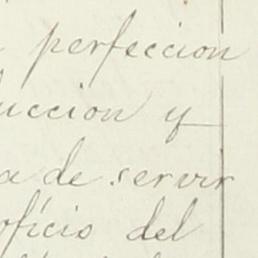 perfeccion
uccion y
a de servir
oficio del